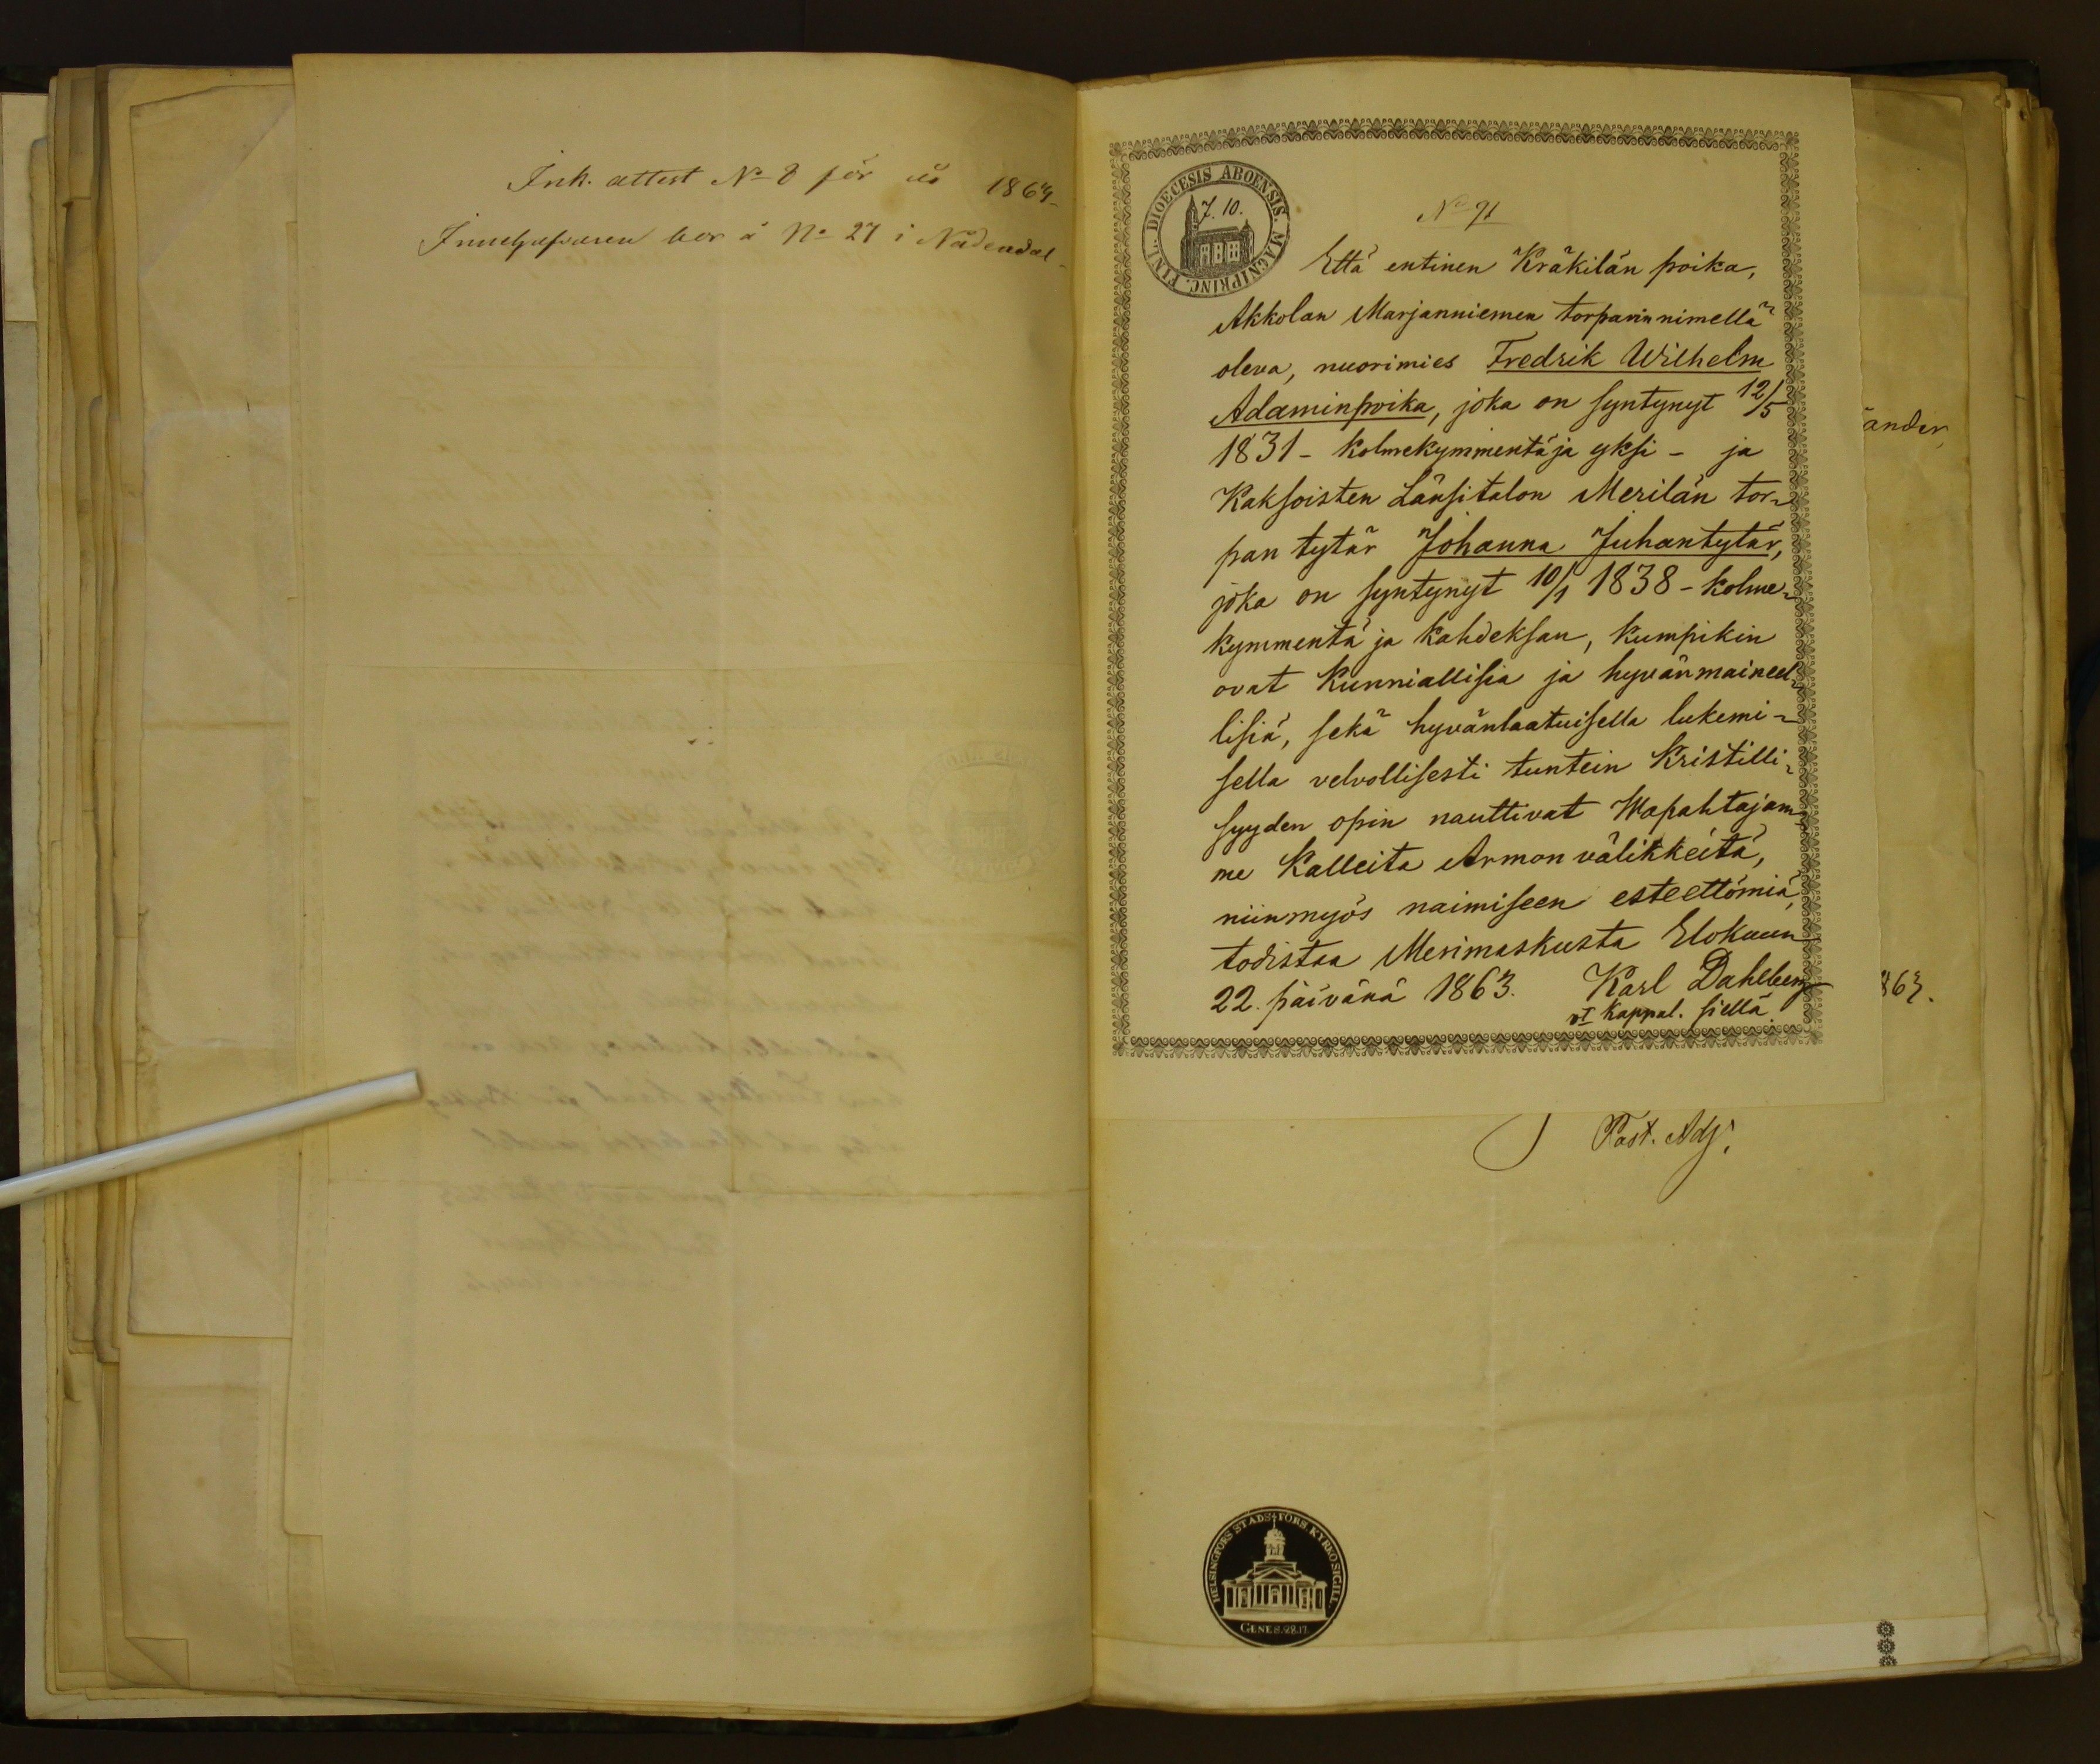 Inh. attest No 8 för år 1864
Innehafvaren bor å No 27 i Nådendal
DIOECESIS ABOENSIS. MAGNI PRINC. FINL.
J. 10.
No 91
Että entinen Kräkilän poika,
Akkolan Marjanniemen torparin nimellä
oleva, nuorimies Fredrik Wilhelm
Adaminpoika, joka on syntynyt 12/5
1831 - kolmekymmentä ja yksi - ja
Kaksoisten Länsitalon Merilän tor-
pan tytär Johanna Juhantytär,
joka on syntynyt 10/1 1838 - kolme-
kymmentä ja kahdeksan, kumpikin
ovat kunniallisia ja hyvänmaineel-
lisiä, sekä hyvänlaatuisella lukemi-
sella velvollisesti tuntein Kristilli-
syyden opin nauttivat Wapahtajam-
me Kalleita Armon välikkeitä,
niinmyös naimiseen esteettömiä,
todistaa Merimaskusta Elokuun
22. päivänä 1863. Karl Dahlberg
vt Kappal. siellä.
änder
863.
Past. Adj.
HELSINGFORS STADS FÖRS. KYRKO SIGILL.
GENES. 28.17.